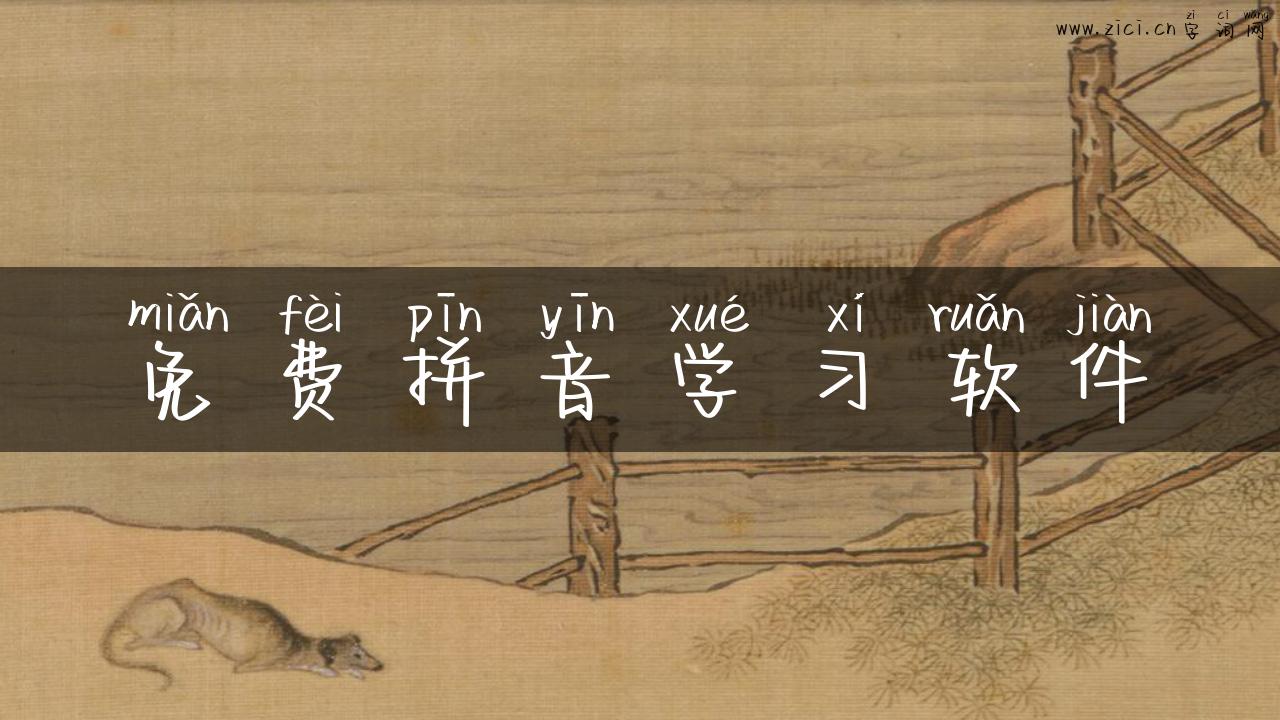 zì cí wǎng
www.zici.cn 字 词 网
miǎn fèi pīn yīn xué xí ruǎn jiàn
免 费 拼 音 学 习 软 件